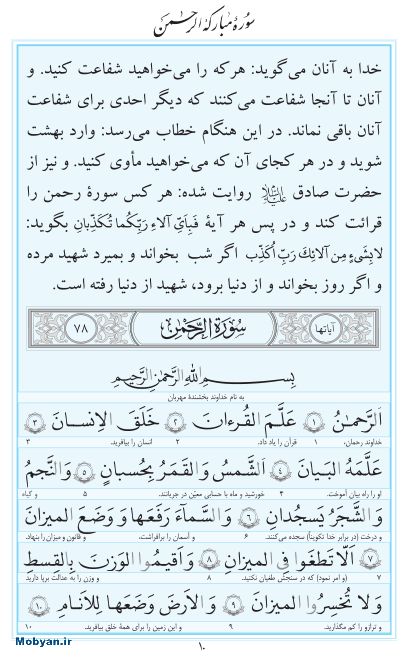 سورهٔ مبارکهٔ الرحمن
خدا به آنان می‌گوید: هرکه را می‌خواهید شفاعت کنید. و
آنان تا آنجا شفاعت می‌کنند که دیگر احدی برای شفاعت
آنان باقی نماند. در این هنگام خطاب می‌رسد: وارد بهشت
شوید و در هر کجای آن که می‌خواهید مأوی کنید. و نیز از
حضرت صادق علیه‌السلام روایت شده: هر کس سورهٔ رحمن را
قرائت کند و در پس هر آیهٔ فَبِأَیِّ آلاءِ رَبِّکُما تُکَذِّبانِ بگوید:
لابِشَیءٍ مِن آلائِكَ رَبِّ اُکَذِّب اگر شب بخواند و بمیرد شهید مرده
و اگر روز بخواند و از دنیا برود، شهید از دنیا رفته است.
آیاتها سُورَةُ الرَّحمٰن ۷۸
بِسمِ اللهِ الرَّحمٰنِ الرَّحیمِ
به نام خداوند بخشندهٔ مهربان
اَلرَّحمٰنُ ۱ عَلَّمَ القُرءانَ ۲ خَلَقَ الاِنسانَ ۳
خداوند رحمان، ۱ قرآن را یاد داد. ۲ انسان را بیافرید. ۳
عَلَّمَهُ البَیانَ ۴ اَلشَّمسُ وَ القَمَرُ بِحُسبانٍ ۵ وَ النَّجمُ
او را راه بیان آموخت. ۴ خورشید و ماه با حسابی معیّن در جریانند. ۵ و گیاه
وَ الشَّجَرُ یَسجُدانِ ۶ وَ السَّمآءَ رَفَعَها وَ وَضَعَ المیزانَ
و درخت (در برابر خدا تکویناً) سجده می‌کنند. ۶ و آسمان را برافراشت، و قانون و میزان را بنهاد.
۷ اَلّا تَطغَوا فِی المیزانِ ۸ وَ اَقیمُوا الوَزنَ بِالقِسطِ
۷ (و امر نمود) که در سنجش طغیان نکنید. ۸ و وزن را به عدالت برپا دارید
وَ لا تُخسِرُوا المیزانَ ۹ وَ الاَرضَ وَضَعَها لِلاَنامِ ۱۰
و ترازو را کم مگذارید. ۹ و این زمین را برای همهٔ خلق بیافرید. ۱۰
۱۰
Mobyan.ir